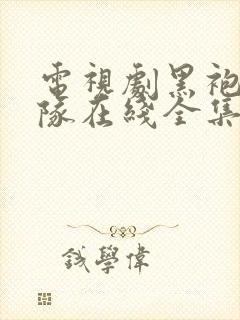 電視劇黑袍
隊在綫全集
錢學偉